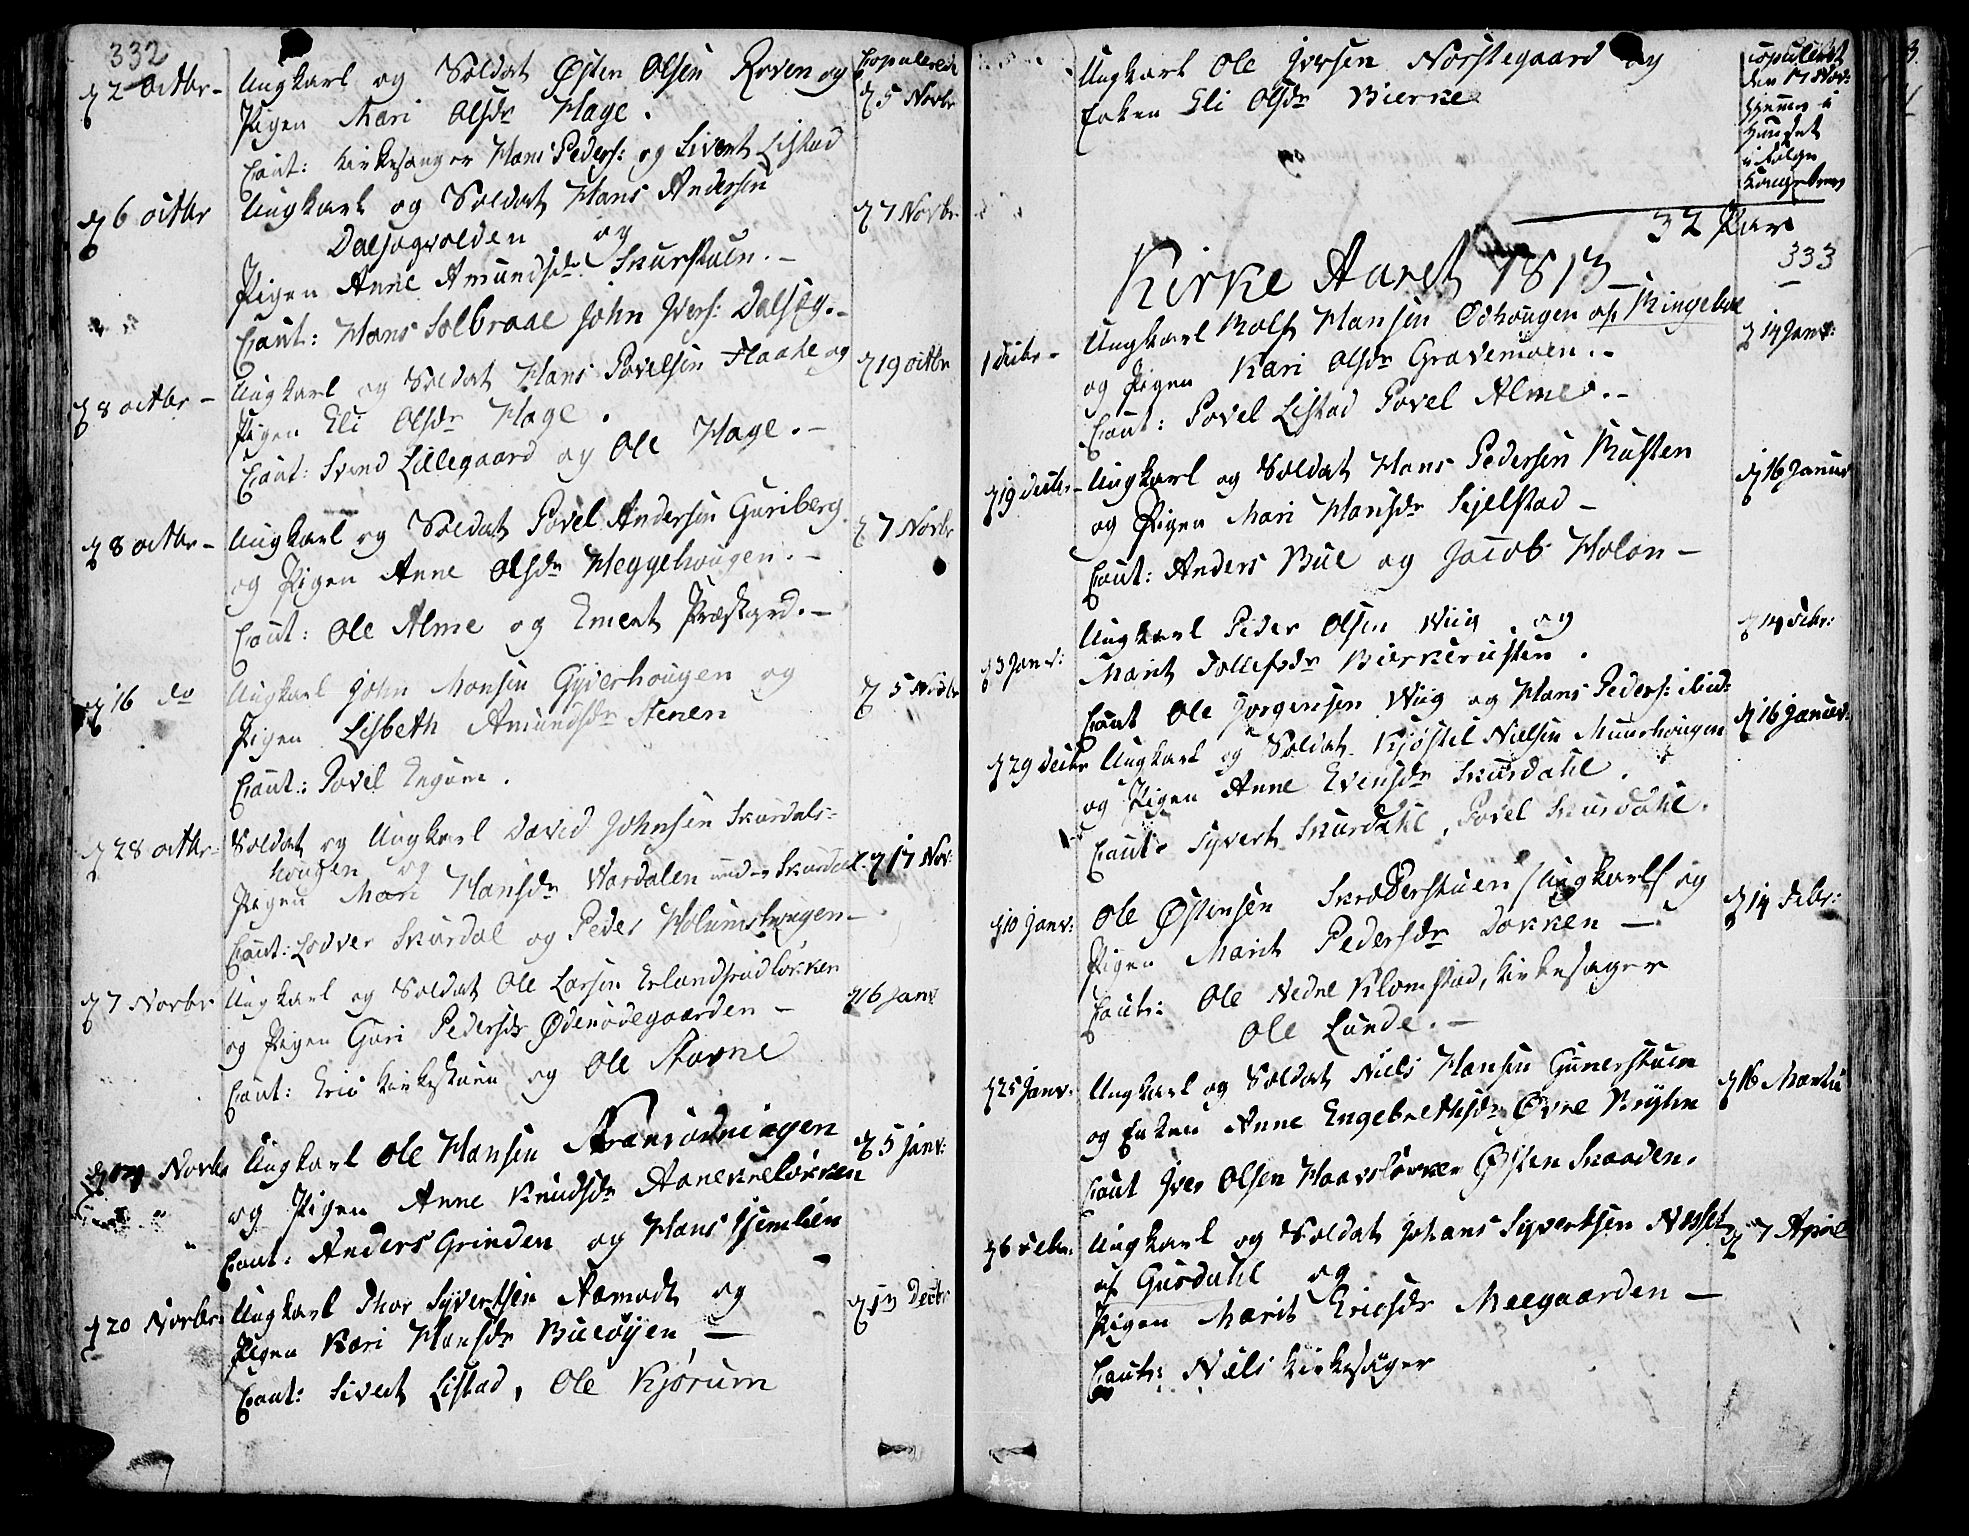 332
d 2 Octbr – Ungkarl og Soldat Østen Olsen Roven og Copulerede d 5 Novbr
Pigen Mari Olsdr Hage.
Caut: Kirkesanger Hans Peders: og Sivert Listad
d 6 octbr Ungkarl og Soldat Hans Andersen d 7 Novbr
Dalsegvolden og
Pigen Anne Amundsdr Skurstuen. –
Caut: Hans Solbraae John Ivers: Dalseg. –
d 8 octbr – Ungkarl og Soldat Hans Povelsen Flaate og d 19 octbr
Pigen Eli Olsdr Hage.
Caut: Svend Lillegaard og Ole Hage. –
d 8 octbr – Ungkarl og Soldat Povel Andersen Guriberg d 7 Novbr
og Pigen Anne Olsdr Heggehougen. –
Caut: Ole Alme og Ement Præstgrd. –
d 16 do Ungkarl John Monsen Gyverhougen og d 5 Novbr
Pigen Lisbeth Amundsdr Stenen
Caut: Povel Engum.
d 28 octbr – Soldat og Ungkarl David Johnsen Skurdals- d 17 Nov:
hougen og
Pigen Mari Hansdr Vardalen under Skurdal.
Caut: Lodver Skurdal og Peder Holumshougen –
d 7 Novbr Ungkarl og Soldat Ole Larsen Erlandsrudløkken d 16 Janv
og Pigen Guri Pedersdr Ødenødegaarden –
Caut: Eric Kirkestuen og Ole Stavne
Novbr Ungkarl Ole Hansen d 5 Janv:
og Pigen Anne Knudsdr Aanekreløkken
Caut: Anders Grinden og Hans Hiemlien –
d 20 Novbr: Ungkarl Thor Syvertsen Aamodt og d 13 Decbr
Pigen Kari Hansdr Bueøyen –
Caut: Sivert Listad, Ole Kjorum
Ungkarl Ole Iversen Norstegaard og
Enken Eli Olsdr Bierke
Copuleret
den 17 Nov:
hjemme i
Huuset
i følge
Kongebrev
32 Par
333
Kirke Aaret 1813
1 decbr – Ungkarl Rolf Hansen Odhougen af Ringeboe d 14 Janv:
og Pigen Kari Olsdr Gravemoen. –
Caut: Povel Listad Povel Alme. –
d 19 decbr – Ungkarl og Soldat Hans Pedersen Rusten d 16 Januar
og Pigen Mari Hansdr Sjelstad –
Caut: Anders Bue og Jacob Holon –
d 3 Janv: Ungkarl Peder Olsen Wiig og d 14 Febr:
Marit Tollefsdr Bierkerusten.
Caut Ole Jorgensen Wiig og Hans Peders:
d 29 decbr Ungkarl og Soldat Kjøstel Nielsen Muurhougen d 16 Januar:
og Pigen Anne Evensdr Skurdahl.
Caut: Syvert Skurdahl, Povel Skurdahl.
d 10 Janv: Ole Østensen Skrædderstuen /Ungkarl/ og d 14 Febr:
Pigen Marit Pedersdr Dokken –
Caut: Ole Nedre Klomstad, Kirkesager
Ole Lunde. –
d 25 Janv: Ungkarl og Soldat Niels Hansen Gunerstuen d 16 Martii
og Enken Anne Engebrethsdr Øvre Bryhn
Caut Iver Olsen Haavsløkken Østen Skaaden.
d 6 Febr: Ungkarl og Soldat Johans Syvertsen Nesset d 7 April
af Gusdahl og
Pigen Marit Ericsdr Meegaarden –
Caut: Niels Kirkesager